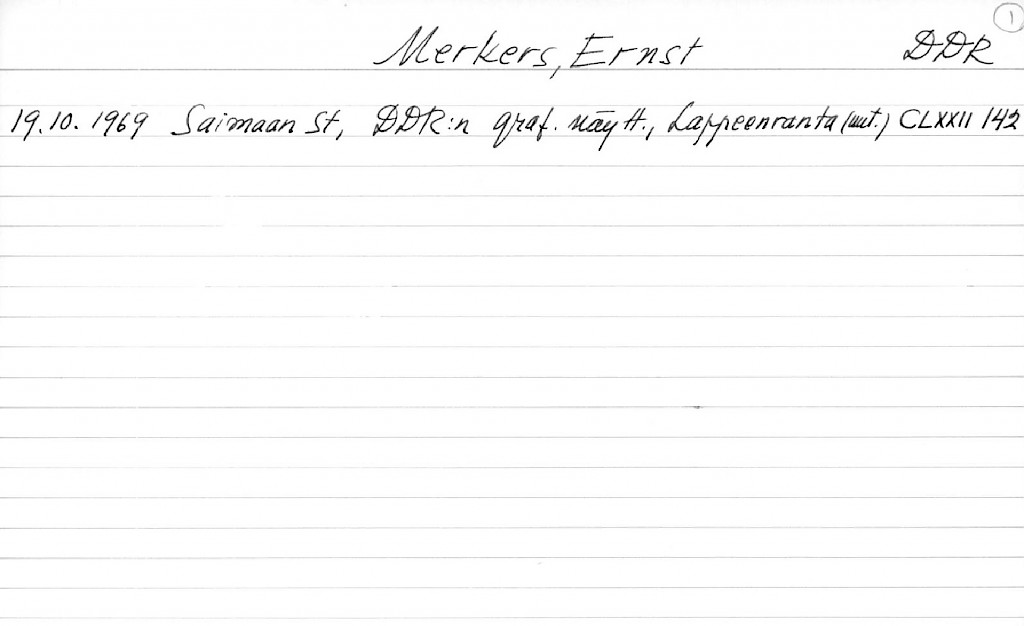 1
Merkers, Ernst DDR
19.10.1969 Saimaan St, DDR:n graf. näytt., Lappeenranta (uut.) CLXXII 142